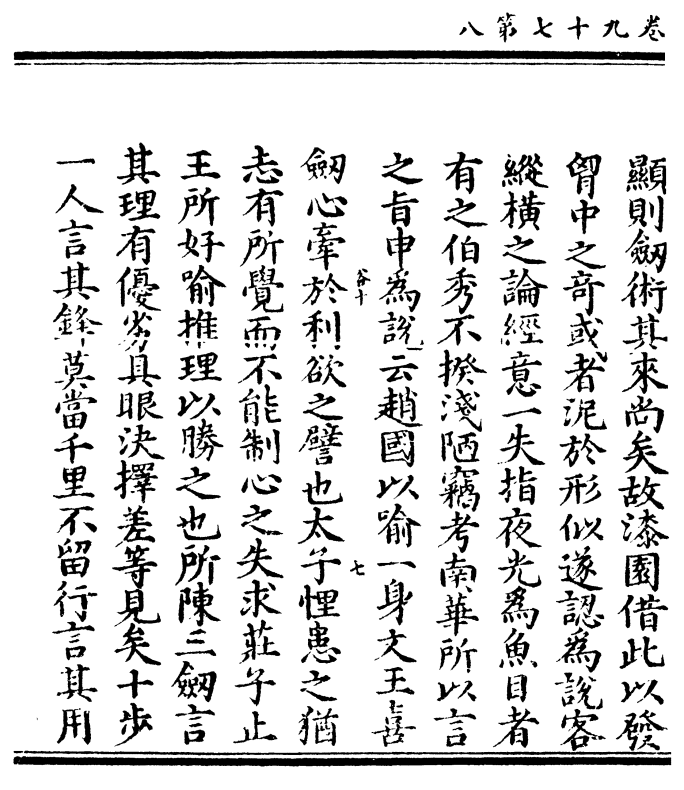 卷九十七第八
顯則劔術其來尚矣故漆園借此以發
胷中之竒或者泥於形似遂認爲說客
縱橫之論經意一失指夜光爲魚目者
有之伯秀不揆淺陋竊考南華所以言
之旨申爲說云趙國以喻一身文王喜
劔心牽於利欲之譬也太子悝患之猶
志有所覺而不能制心之失求莊子止
王所好喻推理以勝之也所陳三劔言
其理有優劣具眼決擇差等見矣十步
一人言其鋒莫當千里不留行言其用
谷十
七